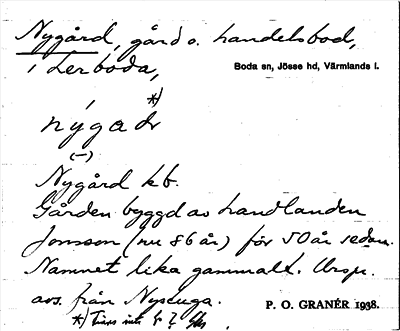 Nygård, gård o. handelsbod,
i Lerboda,
Boda sn, Jösse hd, Värmlands l.
*)
nýgaḍr
(–)
Nygård kb.
Gården byggd av handlanden
Jonsson (nu 86 år) för 50 år sedan.
Namnet lika gammalt. Ursp.
avs. från Nysuga.
P. O. GRANÉR 1938.
*) Finns inte